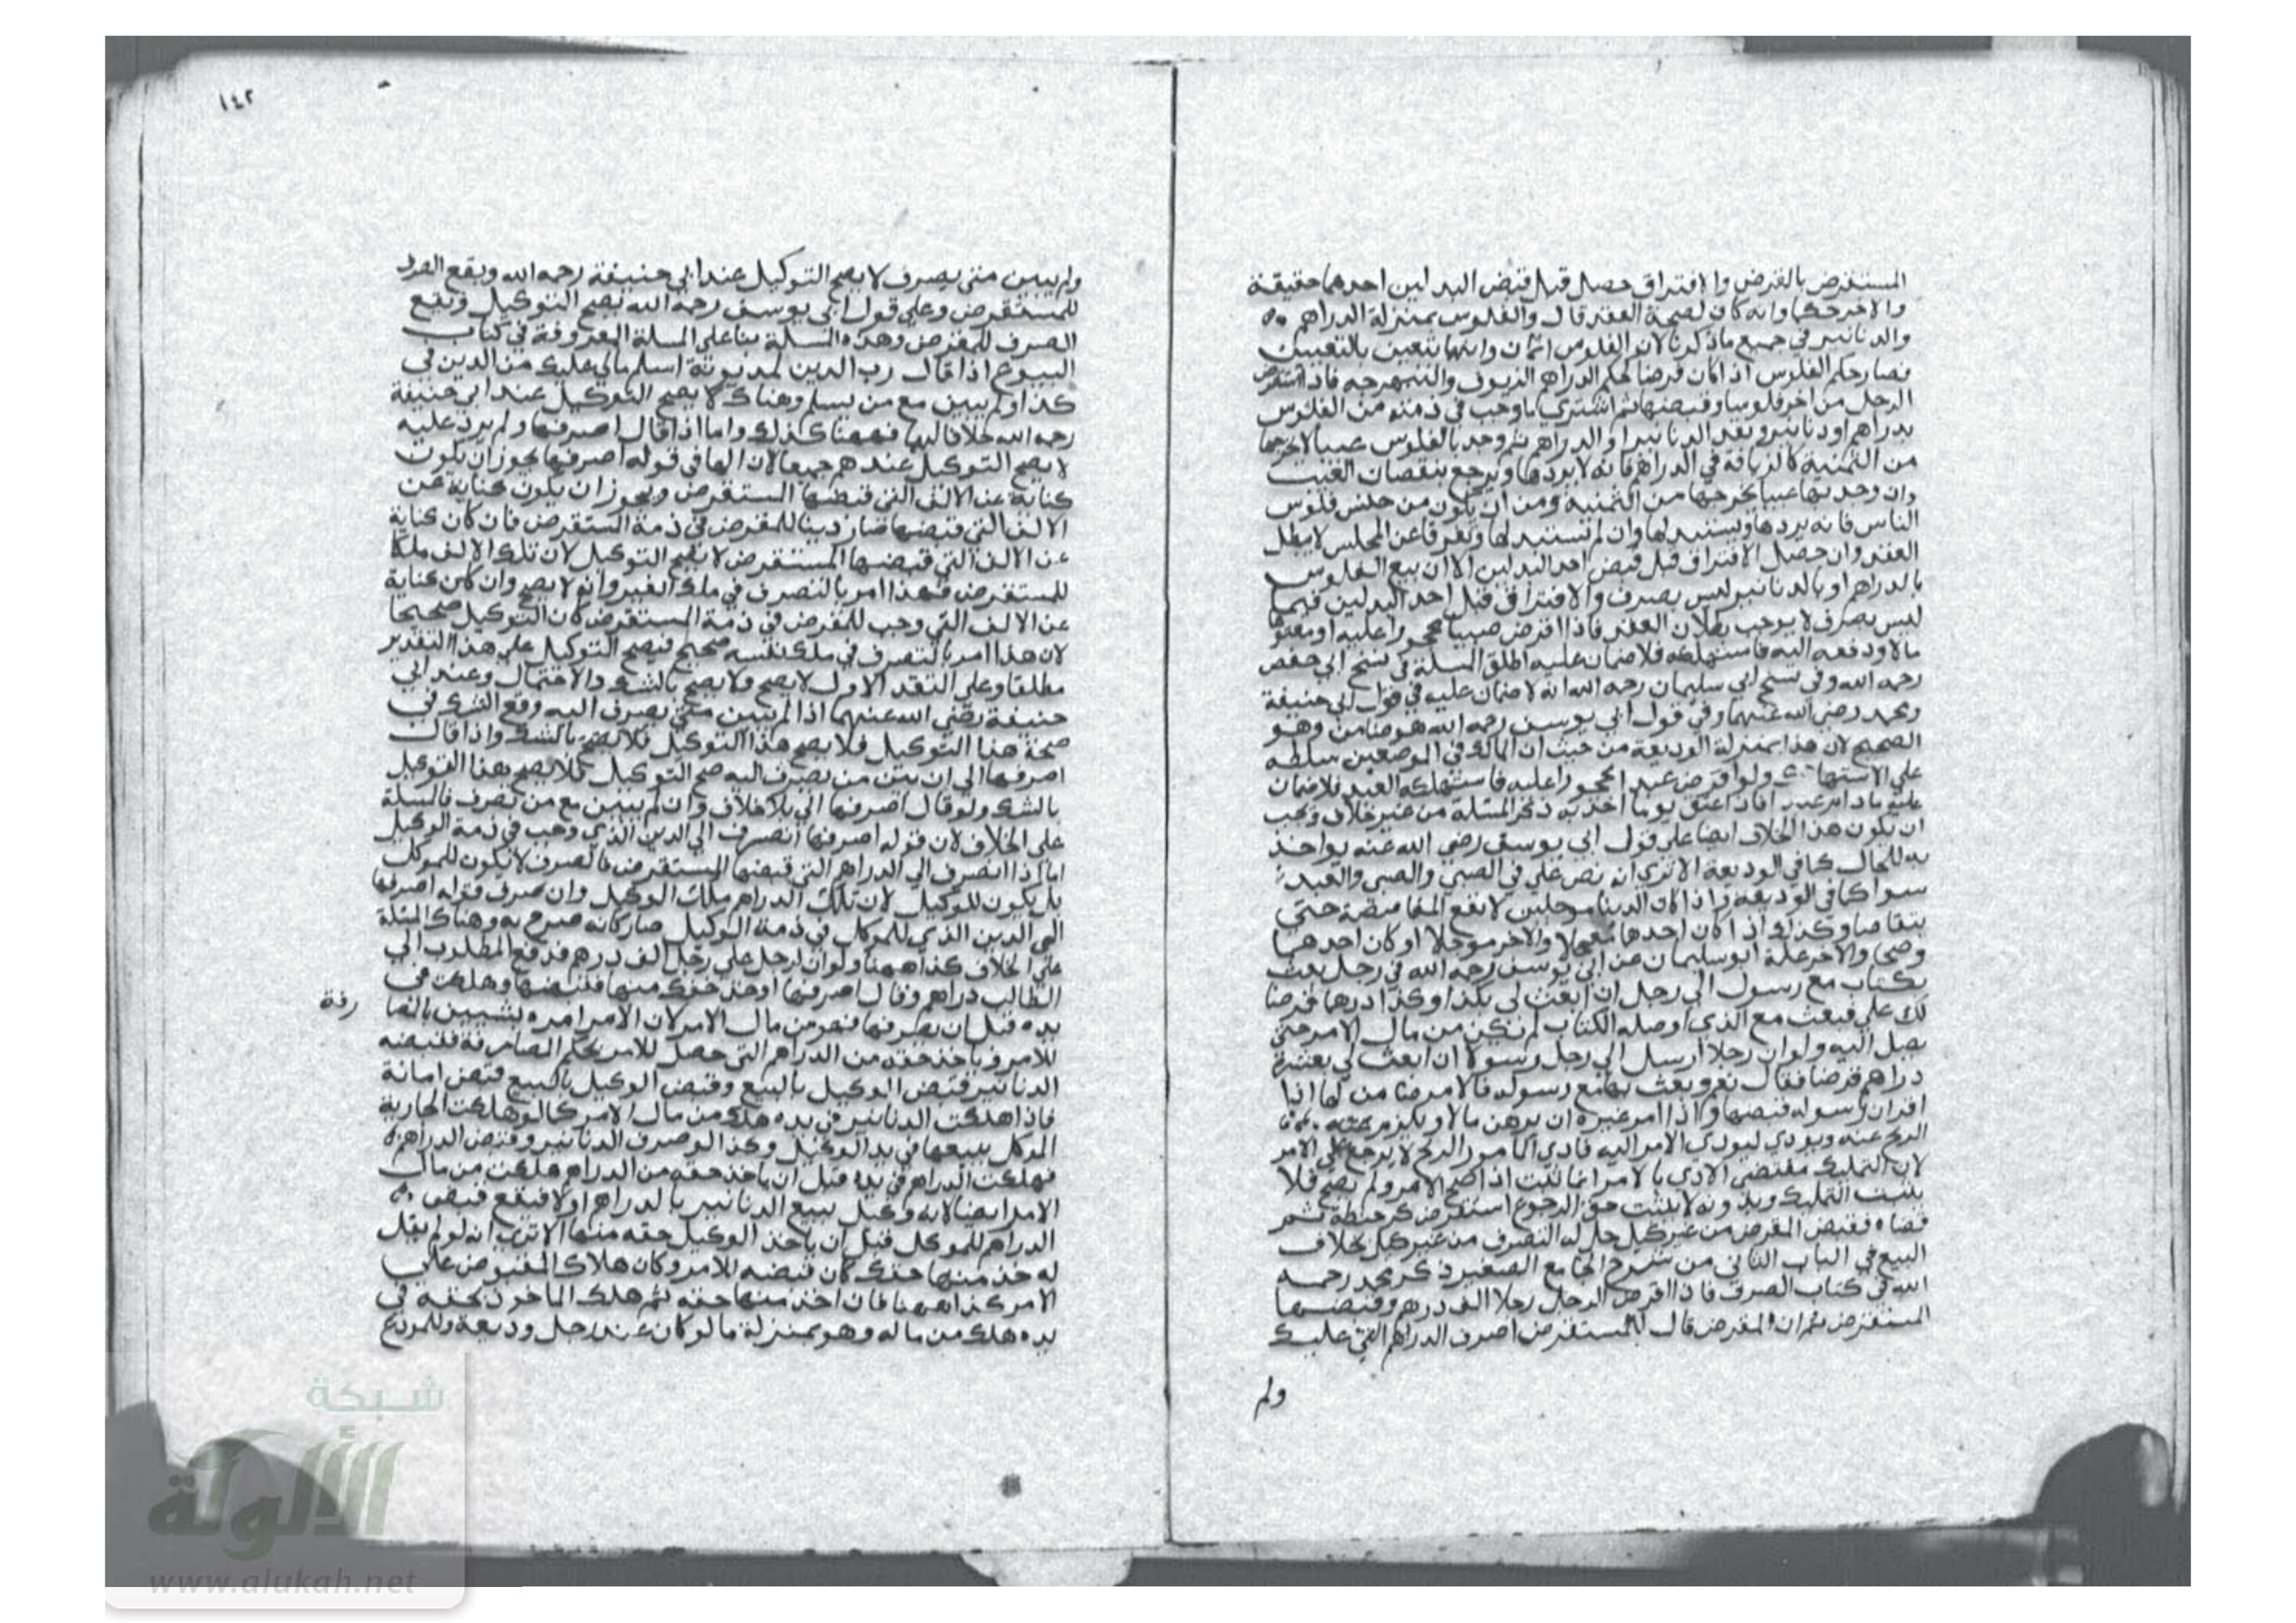 المستقرض بالقرض والافتراق حصل قبل قبض البدلين احدهما حقيقة
والاخر حكما وانه كان لصحة العقد قال والفلوس بمنزلة الدراهم
والدنانير في جميع ماذكرنا لان الفلوس اثمان وانها تتعين بالتعيين
فصار حكم الفلوس اذا كان قرضا حكم الدراهم الزيوف والنبهرجه فاذا استقرض
الرجل من اخر فلوسا وقبضها ثم اشتري ما وجب في ذمته من الفلوس
بدراهم او دنانير ونقد الدنانير او الدراهم ثم وجد بالفلوس عيبا لا يخرجها
من الثمنية كالزيافة في الدراهم فانه لا يردها ويرجع بنقصان العيب
وان وجد بها عيبا يخرجها من الثمنية ومن ان يكون من جنس فلوس
الناس فانه يردها ويستبدلها وان لم تستبدلها وتفرقا عن المجلس لا يبطل
العقد وان حصل الافتراق قبل قبض احد البدلين الا ان بيع الفلوس
بالدراهم او بالدنانير ليس بصرف والافتراق قبل احد البدلين فيما
ليس بصرف لا يوجب بطلان العقد فاذا اقرض صبيا محجورا عليه او معتوها
مالا ودفعه اليه فاستهلكه فلا ضمان عليه اطلق المسلة في نسخ ابي حفص
رحمه الله وفي نسخ ابي سليمان رحمه الله انه لا ضمان عليه في قول ابي حنيفة
ومحمد رضي الله عنهما وفي قول ابي يوسف رحمه الله هو ضامن وهو
الصحيح لان هذا بمنزلة الوديعة من حيث ان المالك في الموضعين سلطه
علي الاستهلاك ولو اقرض عبدا محجورا عليه فاستهلكه العبد فلا ضمان
عليه مادام عبدا فاذا عتق يوما اخذ به ذكر المسئلة من غير خلاف ويجب
ان يكون هذا الخلاف ايضا علي قول ابي يوسف رضي الله عنه يواخذ
به للحال كما في الوديعة الا تري انه نص علي في الصبي والصبي والعبد
سوا كما في الوديعة واذا كان الدينا موجلين لا تقع المقاصة حتي
يتقاصا وكذلك اذا كان احدهما معجلا والاخر موجلا او كان احدهما
وضحا والاخر غلة ابو سليمان عن ابي يوسف رحمه الله في رجل بعث
بكتاب مع رسول الي رجل ان ابعث لي بكذا وكذا درهما قرضا
لك علي فبعث مع الذي اوصله الكتاب لم تكن من مال الامر حتي
يصل اليه ولو ان رجلا ارسل الي رجل رسولا ان ابعث لي بعشرة
دراهم قرضا فقال نعم وبعث بها مع رسوله فالامر ضامن لها اذا
اقر ان رسوله قبضها واذا امر غيره ان يرهن مالا
الربح عنه ويودي ليودي الامر اليه فادي المامور الربح لا يرجع علي الامر
لان التمليك مقتضي الادي بالامر انما ثبت اذا صح الامر ولم يصح فلا
يثبت التمليك وبدونه لا يثبت حق الرجوع استقرض كر حنطة ثم
قضاه فقبض المقرض من غير كيل حل له التصرف من غير كيل بخلاف
البيع في الباب الثاني من شرح الجامع الصغير ذكر محمد رحمه
الله في كتاب الصرف فاذا اقرض الرجل رجلا الف درهم وقبضها
المستقرض ثم ان المقرض قال للمستقرض اصرف الدراهم التي عليك
ولم
١٤٢
ولم يبين متي يصرف لا يصح التوكيل عند ابي حنيفة رحمه الله ويقع الصرف
للمستقرض وعلي قول ابي يوسف رحمه الله يصح التوكيل ويقع
الصرف للمقرض وهذه المسلة بنا علي المسلة المعروفة في كتاب
البيوع اذا قال رب الدين لمديونه اسلم مالي عليك من الدين في
كذا ولم يبين مع من يسلم وهناك لا يصح التوكيل عند ابي حنيفة
رحمه الله خلافا لهما فههنا كذلك واما اذا قال اصرفها ولم يرد عليه
لا يصح التوكيل عندهم جميعا لان الها في قوله اصرفها يجوز ان يكون
كناية عن الالف التي قبضها المستقرض ويجوز ان يكون كناية عن
الالف التي قبضها صار دينا للمقرض في ذمة المستقرض فان كان كناية
عن الالف التي قبضها المستقرض لا يصح التوكيل لان تلك الالف ملكا
للمستقرض فهذا امر بالتصرف في ملك الغير وانه لا يصح وان كان كناية
عن الالف التي وجب للمقرض في ذمة المستقرض كان التوكيل صحيحا
لان هذا امر بالتصرف في ملك نفسه صحيح فيصح التوكيل علي هذا التقدير
مطلقا وعلي التقدير الاول لا يصح ولا يصح بالشك والاحتمال وعند ابي
حنيفة رضي الله عنهما اذا لم يبين متي يصرف اليه وقع الشك في
صحة هذا التوكيل فلا يصح هذا التوكيل فلا يصح بالشك واذا قال
اصرفها الي ان يبين من يصرف اليه صح التوكيل فلا يصح هذا التوكيل
بالشك ولو قال اصرفها الي بلا خلاف وان لم يبين مع من تصرف فالمسلة
علي الخلاف لان قوله اصرفها انصرف الي الدين الذي وجب في ذمة الوكيل
اما اذا انصرف الي الدراهم التي قبضها المستقرض فالصرف لا يكون للموكل
بل يكون للوكيل لان تلك الدراهم ملك الوكيل وان صرف قوله اصرفها
الي الدين الذي للموكل في ذمة الوكيل صار كانه صرح به وهناك المسئلة
علي الخلاف كذا ههنا ولو ان لرجل علي رجل الف درهم فدفع المطلوب الي
الطالب دراهم وقال اصرفها وخذ حقك منها فقبضها وهلكت في
يده قبل ان يصرفها فهو من مال الامر لان الامر امره بشيين بالمصا
رفة
للامر وياخذ حقه من الدراهم التي حصل للامر بحكم المصارفة فلقبضه
الدنانير قبض الوكيل بالبيع وقبض الوكيل بالبيع قبض امانة
فاذا هلكت الدنانير في يده هلك من مال الامر كما لو هلكت الجارية
الموكل ببيعها في يد الوكيل وكذا لو صرف الدنانير وقبض الدراهم
فهلكت الدراهم في يده قبل ان ياخذ حقه من الدراهم هلكت من مال
الامر ايضا لانه وكيل ببيع الدنانير بالدراهم اولا فيقع قبض
الدراهم للموكل قبل ان ياخذ الوكيل حقه منها الا تري انه لو لم يقل
له خذ منها حقك كان قبضه للامر وكان هلاك المقبوض علي
الامر كذا ههنا فان اخذ منها حقه ثم هلك الماخوذ بحقه في
يده هلك من ماله وهو بمنزلة ما لو كان عند رجل وديعة وللمودع
شبكة
الألوكة
www.alukah.net